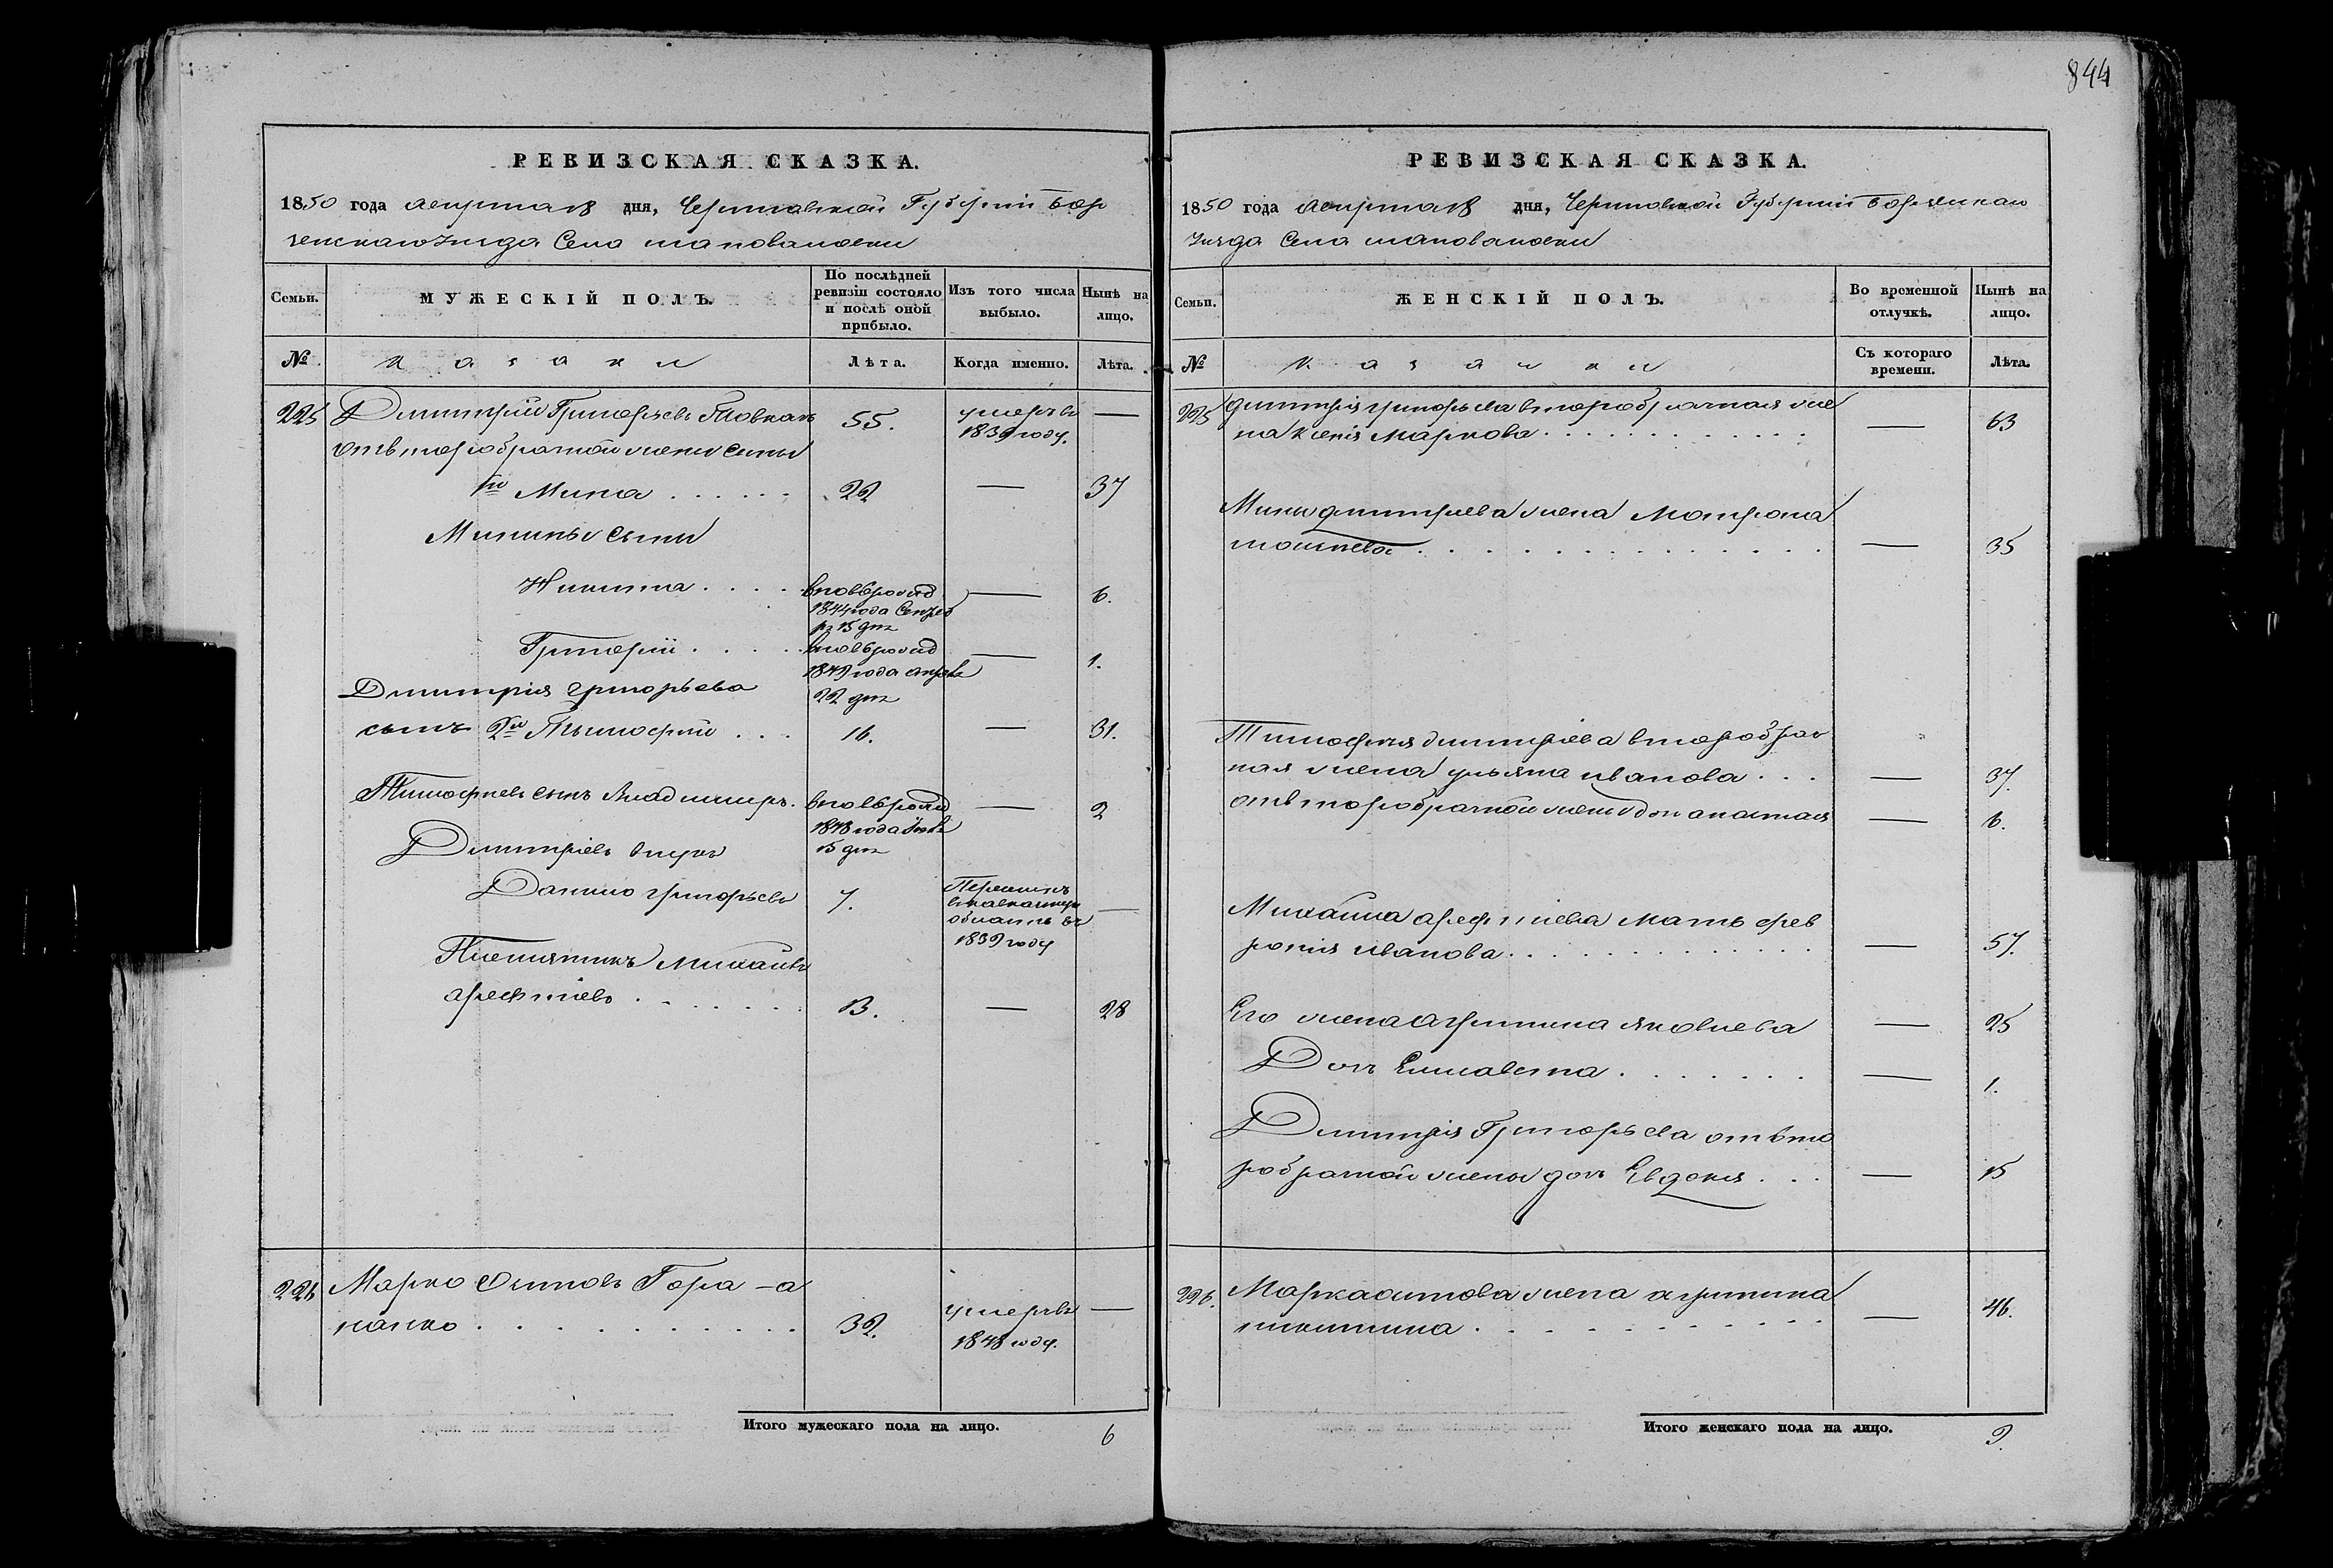 844
РЕВИЗСКАЯ СКАЗКА.
1850 года августа 18 дня, Черниговской Губерніи Бор
зенскаго уезда Села
Семьи.
МУЖЕСКІЙ ПОЛЪ.
По послѣдней ревизіи состояло и послѣ оной прибыло.
Изъ того числа выбыло.
Нынѣ на лицо.
№
казаки
Лѣта.
Когда именно.
Лѣта.
225 Дмитрій Григорьевъ 55. умеръ въ —
1839 году.
отъ второбрачной жены сыны
1й Мина . . . . . . 22 — 37
Минины сыны
Никита . . . . вновь рожд — 6.
1844 года Сентяб
ря 15 дня
Григорій . . . . . вновь рожд — 1.
1849 года апреля
Дмитрія Григорьева 22 дня
сынъ 2й Тимофій . . . 16. — 31.
Тимофіевъ сынъ Владимиръ. вновь рожд — 2
1848 года
Дмитріевъ внукъ 15 дня
Данило Григорьевъ 7. —
область въ
1839 году
Племянникъ Михайло
арефіевъ . . . . . . . 13. — 28
226 Марко Осиповъ Гора -а
панко . . . . . . . . . . . 32. умеръ въ —
1848 году.
Итого мужескаго пола на лицо. 6
РЕВИЗСКАЯ СКАЗКА.
1850 года августа 18 дня, Черниговской Губерніи Борзенскаго
уезда Села
Семьи.
ЖЕНСКІЙ ПОЛЪ.
Во временной отлучкѣ.
Нынѣ на лицо.
№
казачки
Съ котораго времени.
Лѣта.
225 Дмитрія Григорьева второбрачная же
на Ксенія Маркова . . . . . . . . . . . . — 63
Мины Дмитріева жена Мотрона
. . . . . . . . . . . . . — 35
Тимофія Дмитріева второбрач
ная жена Ульяна Иванова . . . — 37.
отъ второбрачной жены доч анастасія — 6.
Михайла арефіева мать фев
ронія Иванова . . . . . . . . . . . . — 57.
Его жена агрипина яковлева — 25
Доч Елисавета . . . . . . . — 1.
Дмитрія Григорьева отъ вто
робрачной жены доч Евдокія . . . — 15
226. Марка осипова жена агрипина
никитина . . . . . . . . . . . . . — 46.
Итого женскаго пола на лицо. 9.